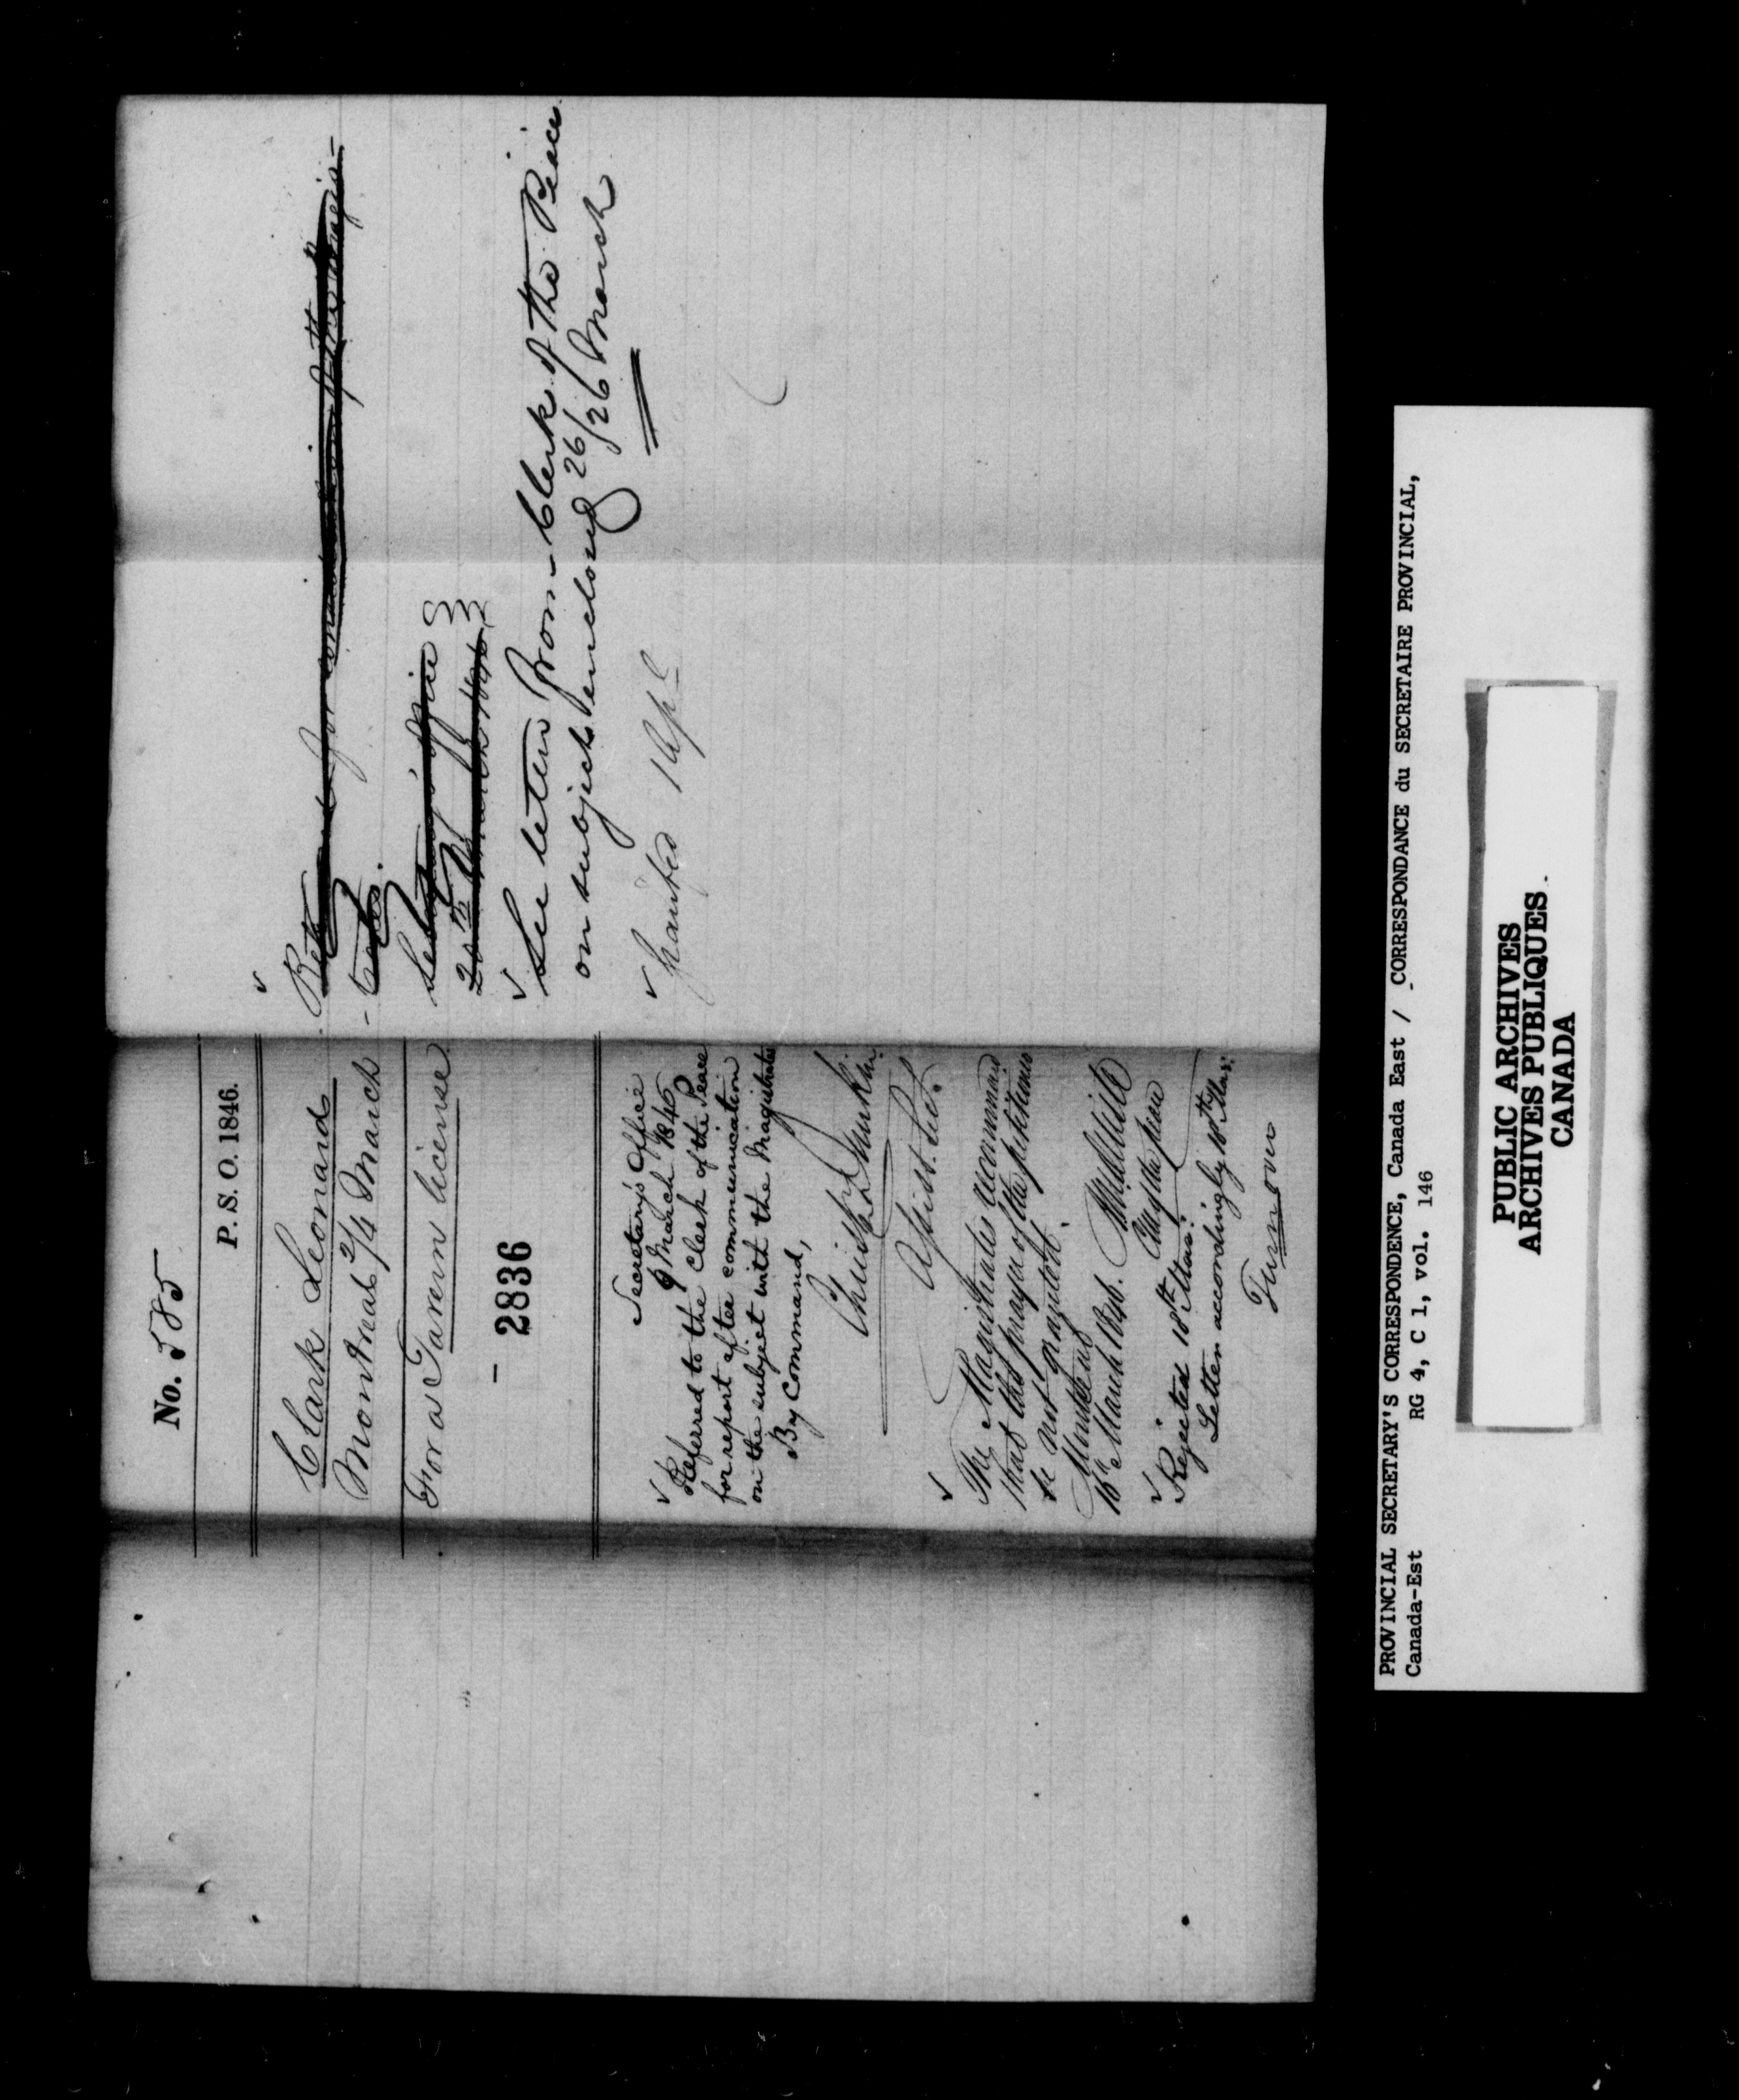 No. 585
P. S. O. 1846.
Clark Leonard
Montreal 2/4 March
For a Tavern license
2836
Secretary's Office
9 March 1846
Referred to the Clerk of the Peace
for report after communication
on the subject with the Magistrates
By Command,
Assist. Sec.
The Magistrates recommend
that the prayer of the petitioner
be not granted.
Montreal
16th March 1846.
Rejected 18th Mar:
Letter accordingly 18th Mar:
Turn over
for consideration of the Magis-
-trates.
Secretary's Office
20th March 1846
See letter from Clerk of the Peace
on subject enclosed 26/26 March
Granted 1 Apl
PROVINCIAL SECRETARY'S CORRESPONDENCE, Canada East / CORRESPONDANCE du SECRETAIRE PROVINCIAL,
Canada-Est RG 4, C 1, vol. 146
PUBLIC ARCHIVES
ARCHIVES PUBLIQUES
CANADA